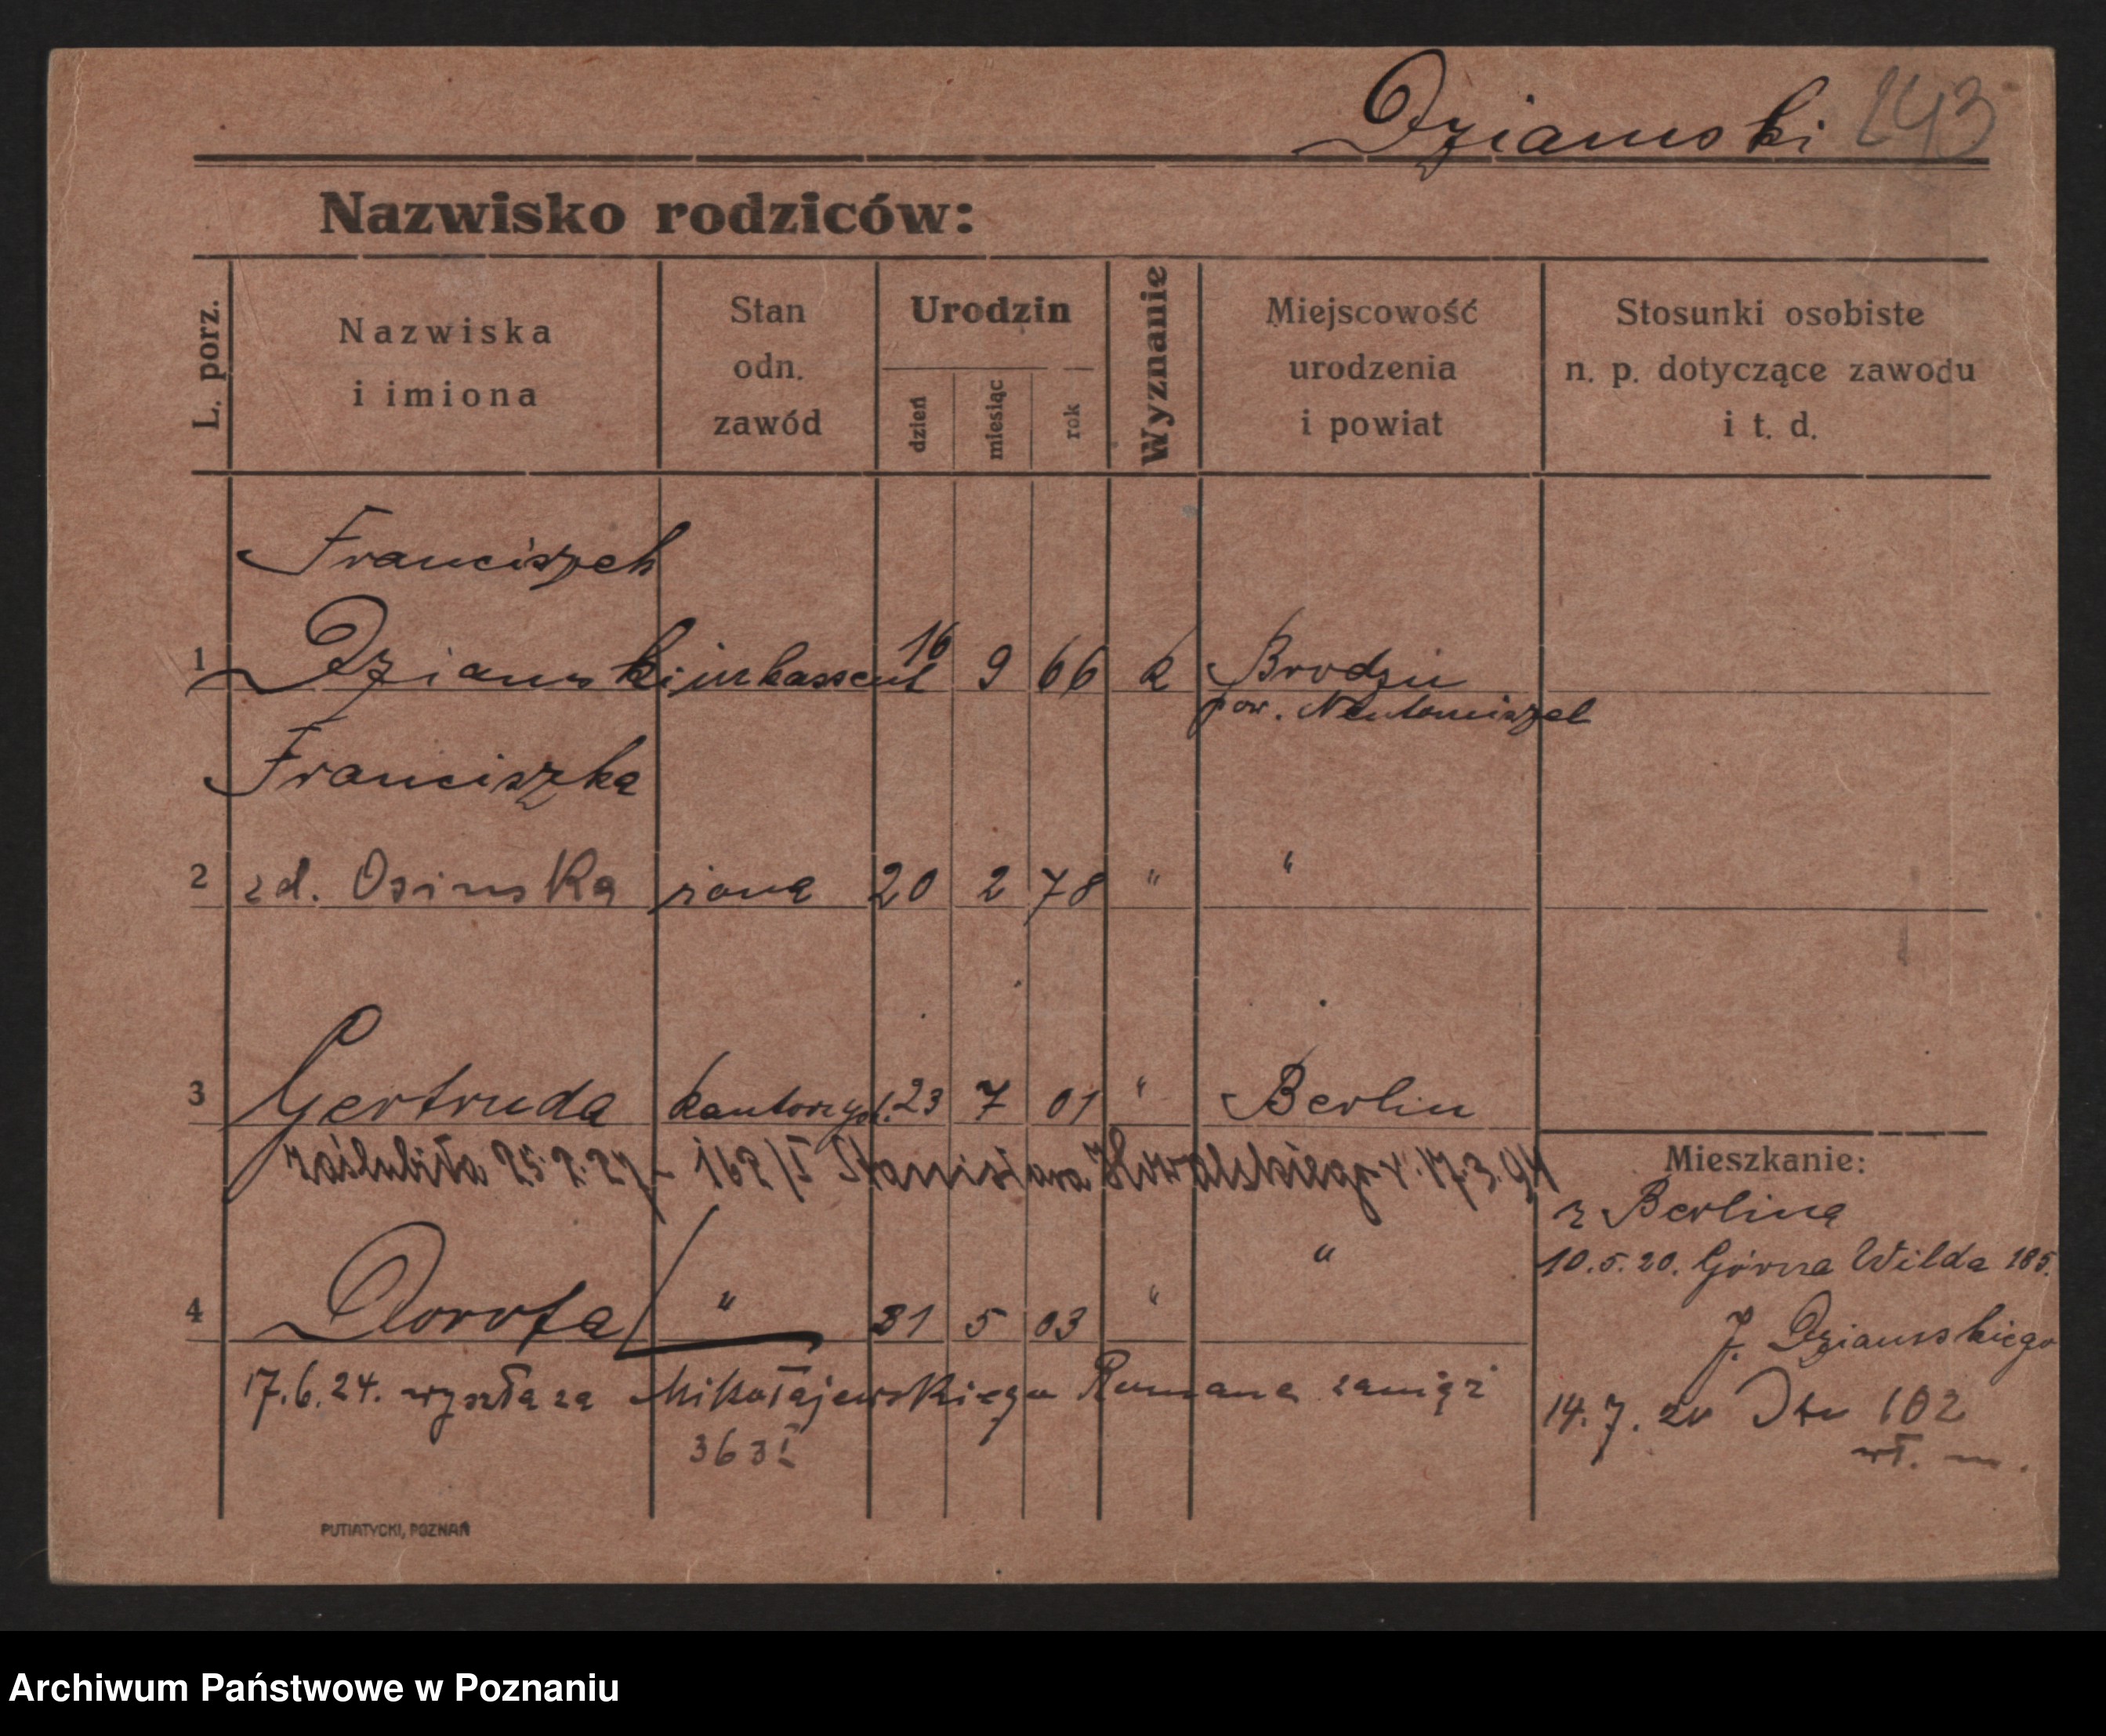 Dziamski 243
Nazwisko rodziców:
L. porz.
Nazwiska
i imiona
Stan
odn.
zawód
Urodzin
dzień
miesiąc
rok
Wyznanie
Miejscowość
urodzenia
i powiat
Stosunki osobiste
n. p. dotyczące zawodu
i t. d.
Franciszek
1 Dziamski inkassent 16 9 66 k Brodzin
pow. Neutomischel
Franciszka
2 zd. Osinska żona 20 2 78 " "
3 Gertruda kantorzyst. 23 7 01 " Berlin
zaślubiła 25.2.27 - 162/I Stanisława 17.3.94
4 Dorota " 31 5 03 " "
17.6.24. wyszła za Mikołajewskiego Romana zamąż
363 I
Mieszkanie:
z Berlina
10.5.20. Górna Wilda 185.
J. Dziamskiego
14.7.20 Dtr 102
wł. m.
PUTIATYCKI, POZNAŃ
Archiwum Państwowe w Poznaniu